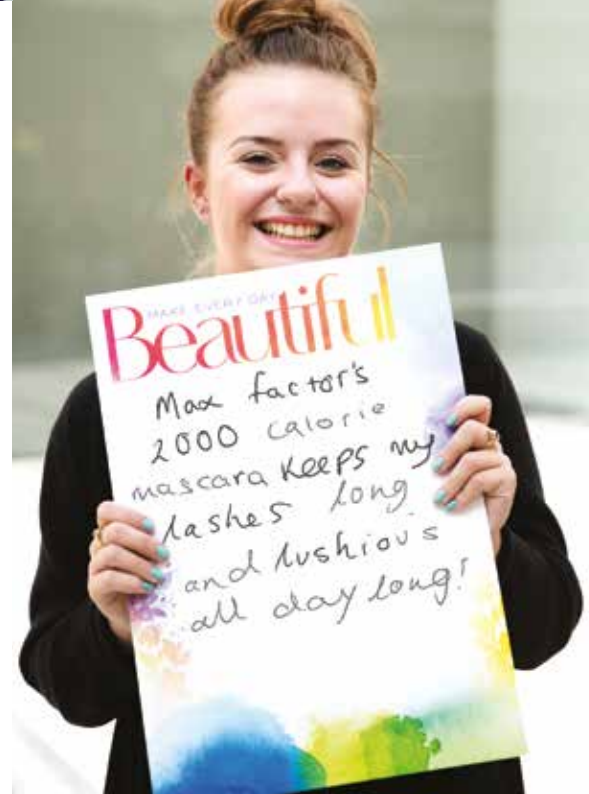 MAKE EVERY DAY
Beautiful
Max factor's
2000 calorie
mascara keeps my
lashes long
and lushious
all day long!